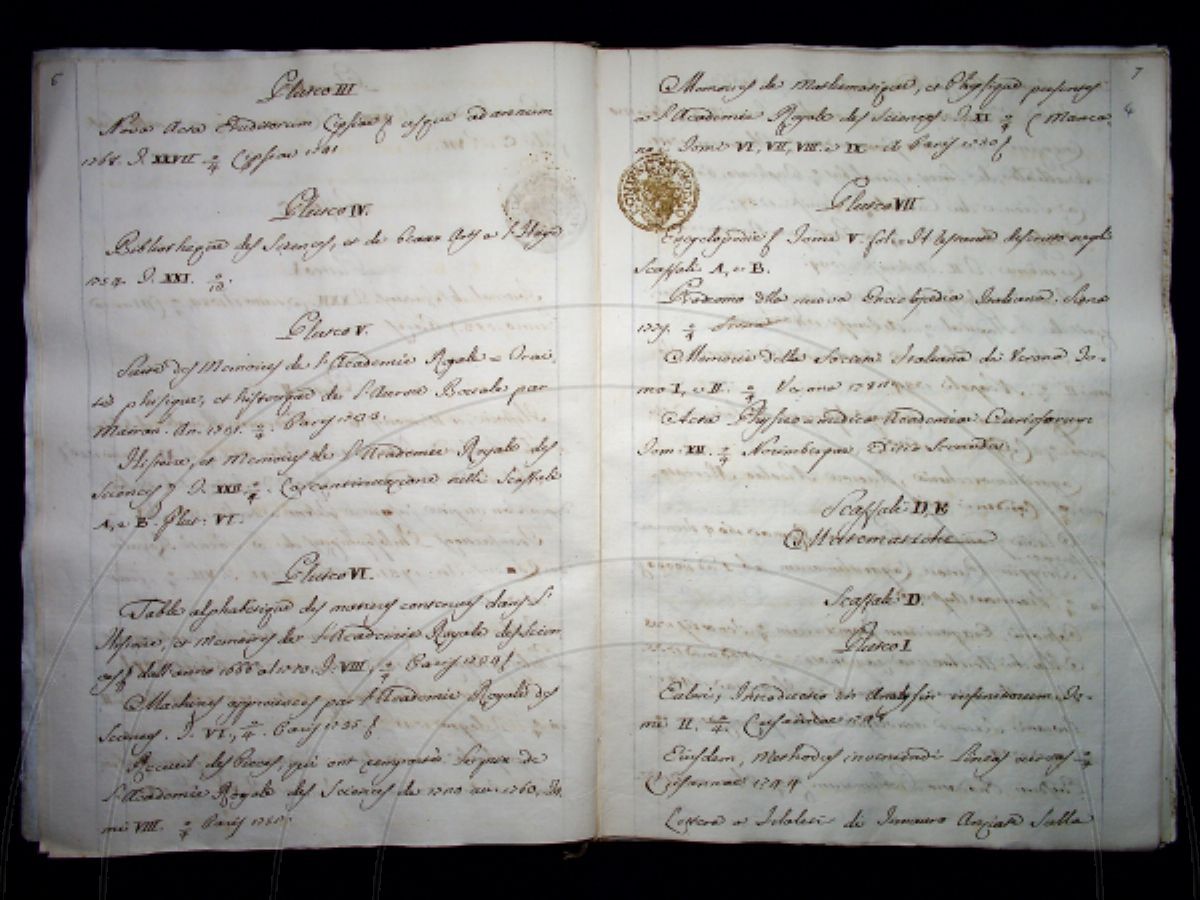 6
Pluteo III
Nova Acta Eruditorum Lipsiae usque ad annum
T. XXVII in 4 Lipsiae
Pluteo IV.
Bibliotheque des Sciences, et de beaux Arts a l'Haye
1754. T. XXI.
Pluteo V.
Suite des Memoires de l'Academie Royale = Trai-
té phisique, et historique de l'Aurore Boreale par
Mairan. An. 1731. 4. Paris 1733.
Histoire, et Memoires de l'Academie Royale des
Sciences T. XXII. 4. La continuazione nelli Scaffali
A, e B. Plut. VI.
Pluteo VI.
Table alphabetique des matieres contenues dans l'
Histoire, et Memoires de l'Academie Royale des Scien-
ces dall'anno 1666 al 1770. T. VIII, 4 Paris 1734
Machines approuvées par l'Academie Royale des
Sciences. T. VI, 4. Paris 1735
Recueil des Pieces, qui ont remportés le prix de
l'Academie Royale des Sciences de 1720 au 1760. To-
mi VIII. 4 Paris
7
4
Memoires de Mathematique, et Phisique presentés
a l'Academie Royale des Sciences. T. XI 4 (Manca-
no i Tomi VI, VII, VIII. e IX Paris 1750
Pluteo VII
Encyclopedie Tomi V. fol. Il restante descritto negli
Scaffali A, e B.
Prodromo della nuova Enciclopedia Italiana. Siena
1779. 4
Memorie della Società Italiana di Verona To-
mo I, e II. 4 Verona
Acta Physico medica Academiae Curiosorum
Tom. XII. 4 Norimbergae
Scaffali D, E
Matematiche
Scaffale D.
Pluteo I.
Euleri, Introductio in Analysin infinitorum To-
mi II. 4 Lausannae
Eiusdem, Methodus inveniendi Lineas curvas 4
Lausannae 1744
Lettera a Idalesi di Sulla